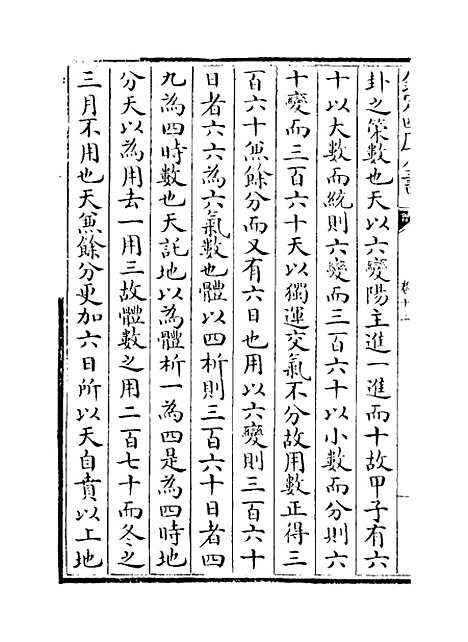 卦之策數也天以六變陽主進一進而十故甲子有六
十以大數而統則六變而三百六十以小數而分則六
十變而三百六十天以獨運交氣不分故用數正得三
百六十無餘分而又有六日也用以六變則三百六十
日者六六為六氣數也體以四析則三百六十日者四
九為四時數也天託地以為體析一為四是為四時地
分天以為用去一用三故體數之用二百七十而冬之
三月不用也天無餘分更加六日所以天自賁以上地